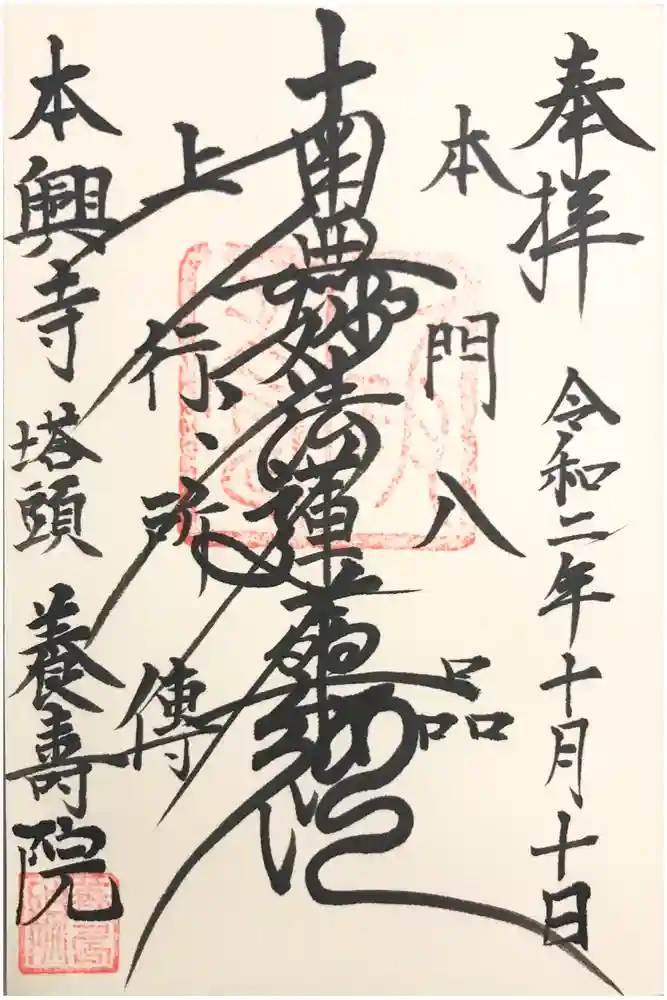 奉拝
令和二年十月十日
本門八品
南無妙法蓮華経
上行所傳
本興寺 塔頭 養壽院